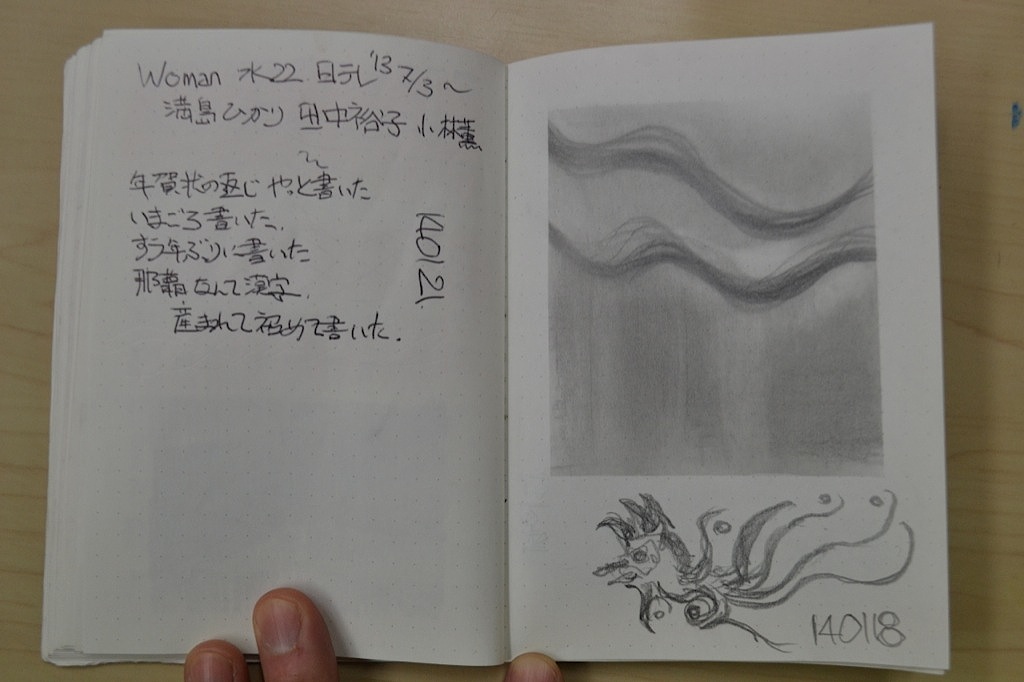 Woman 水22 日テレ '13 7/3〜
満島ひかり 田中裕子 小林薫
年賀状の返じ やっと書いた
いまごろ書いた.
すう年ぶりに書いた
那覇なんて漢字.
産まれて初めて書いた.
140121.
140118